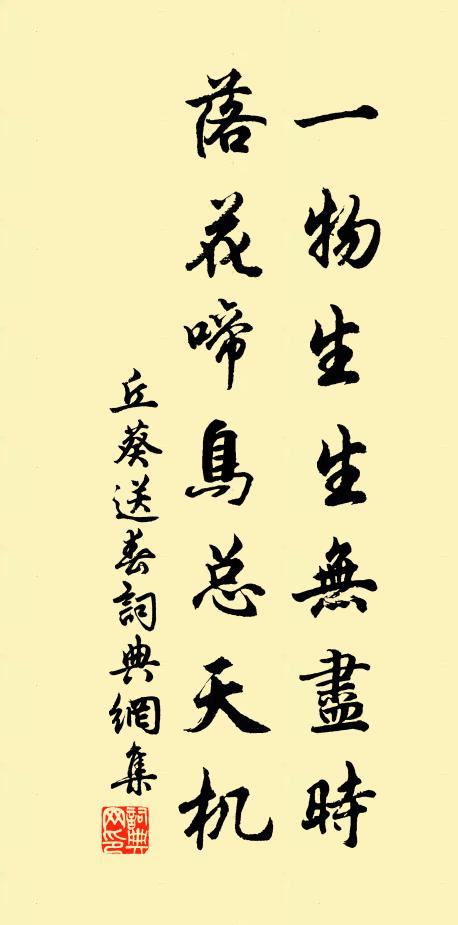 一物生生無盡時
落花啼鳥总天机
丘葵送春詞典網集
詞典网印